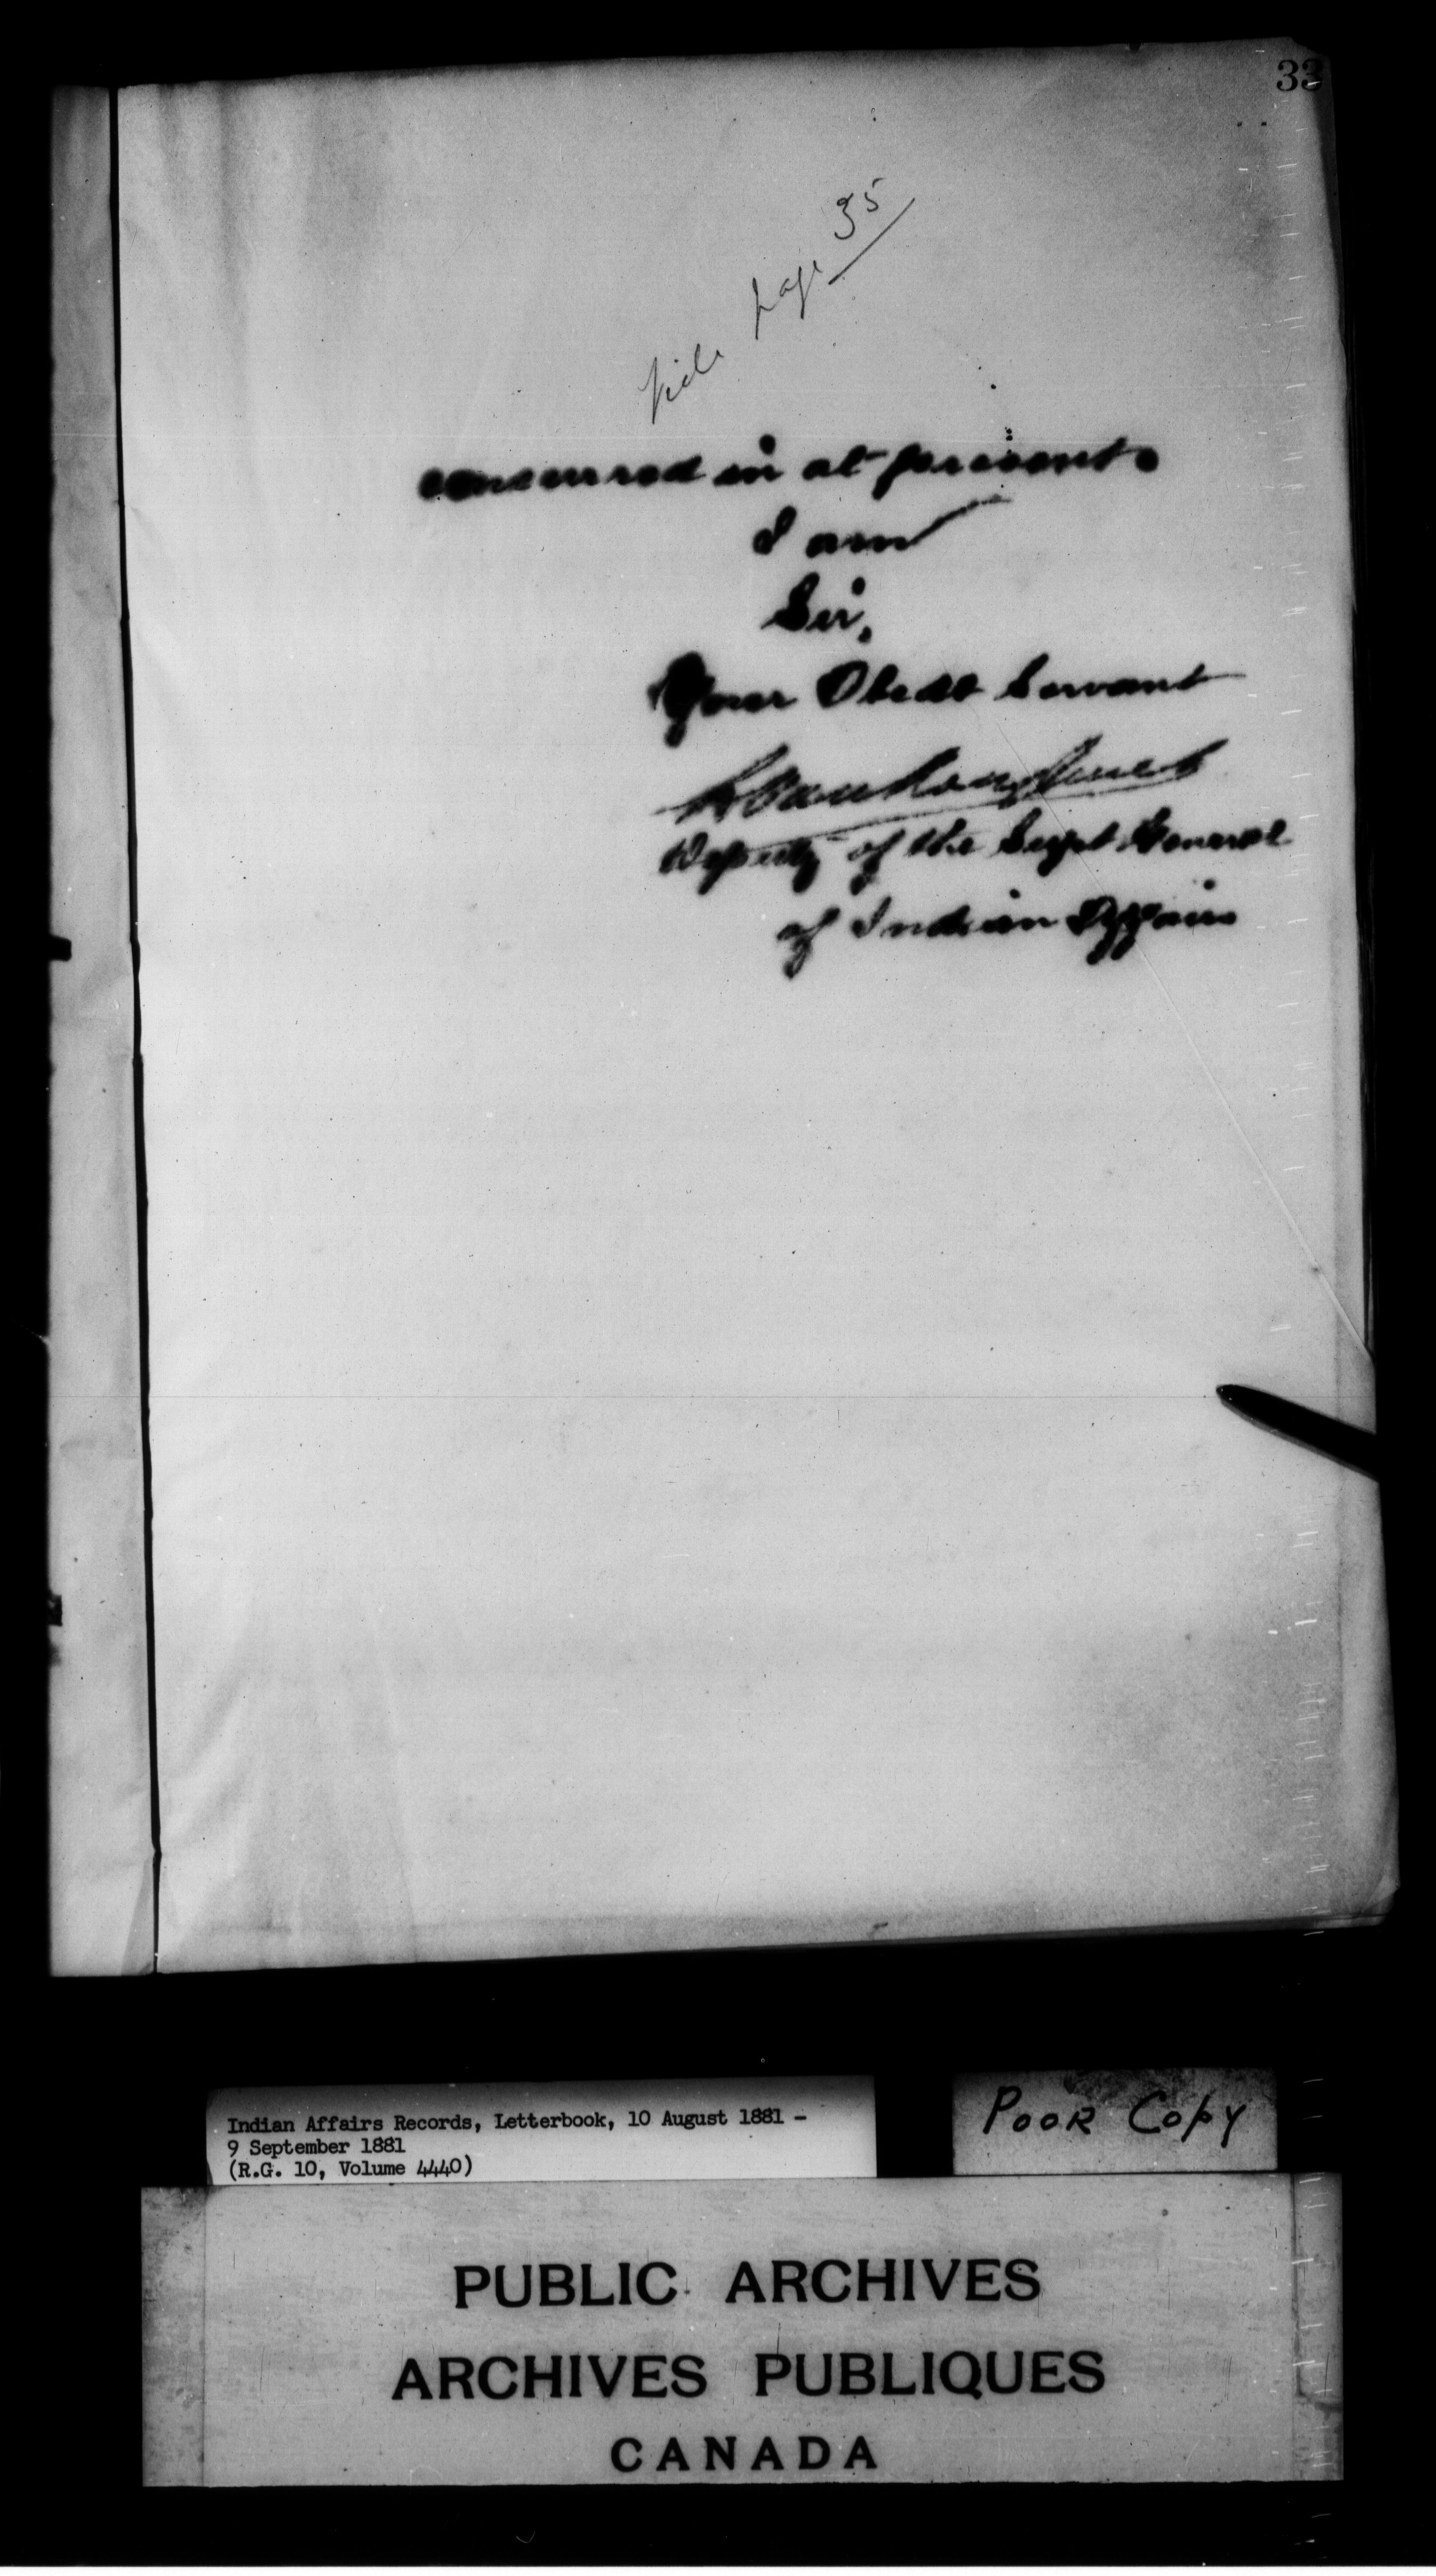 33
Vide page 35
concurred in at present.
I am
Sir,
Your Obedt Servant
L Vankoughnet
Deputy of the Supt General
of Indian Affairs
Indian Affairs Records, Letterbook, 10 August 1881 -
9 September 1881
(R.G. 10, Volume 4440)
POOR COPY
PUBLIC ARCHIVES
ARCHIVES PUBLIQUES
CANADA